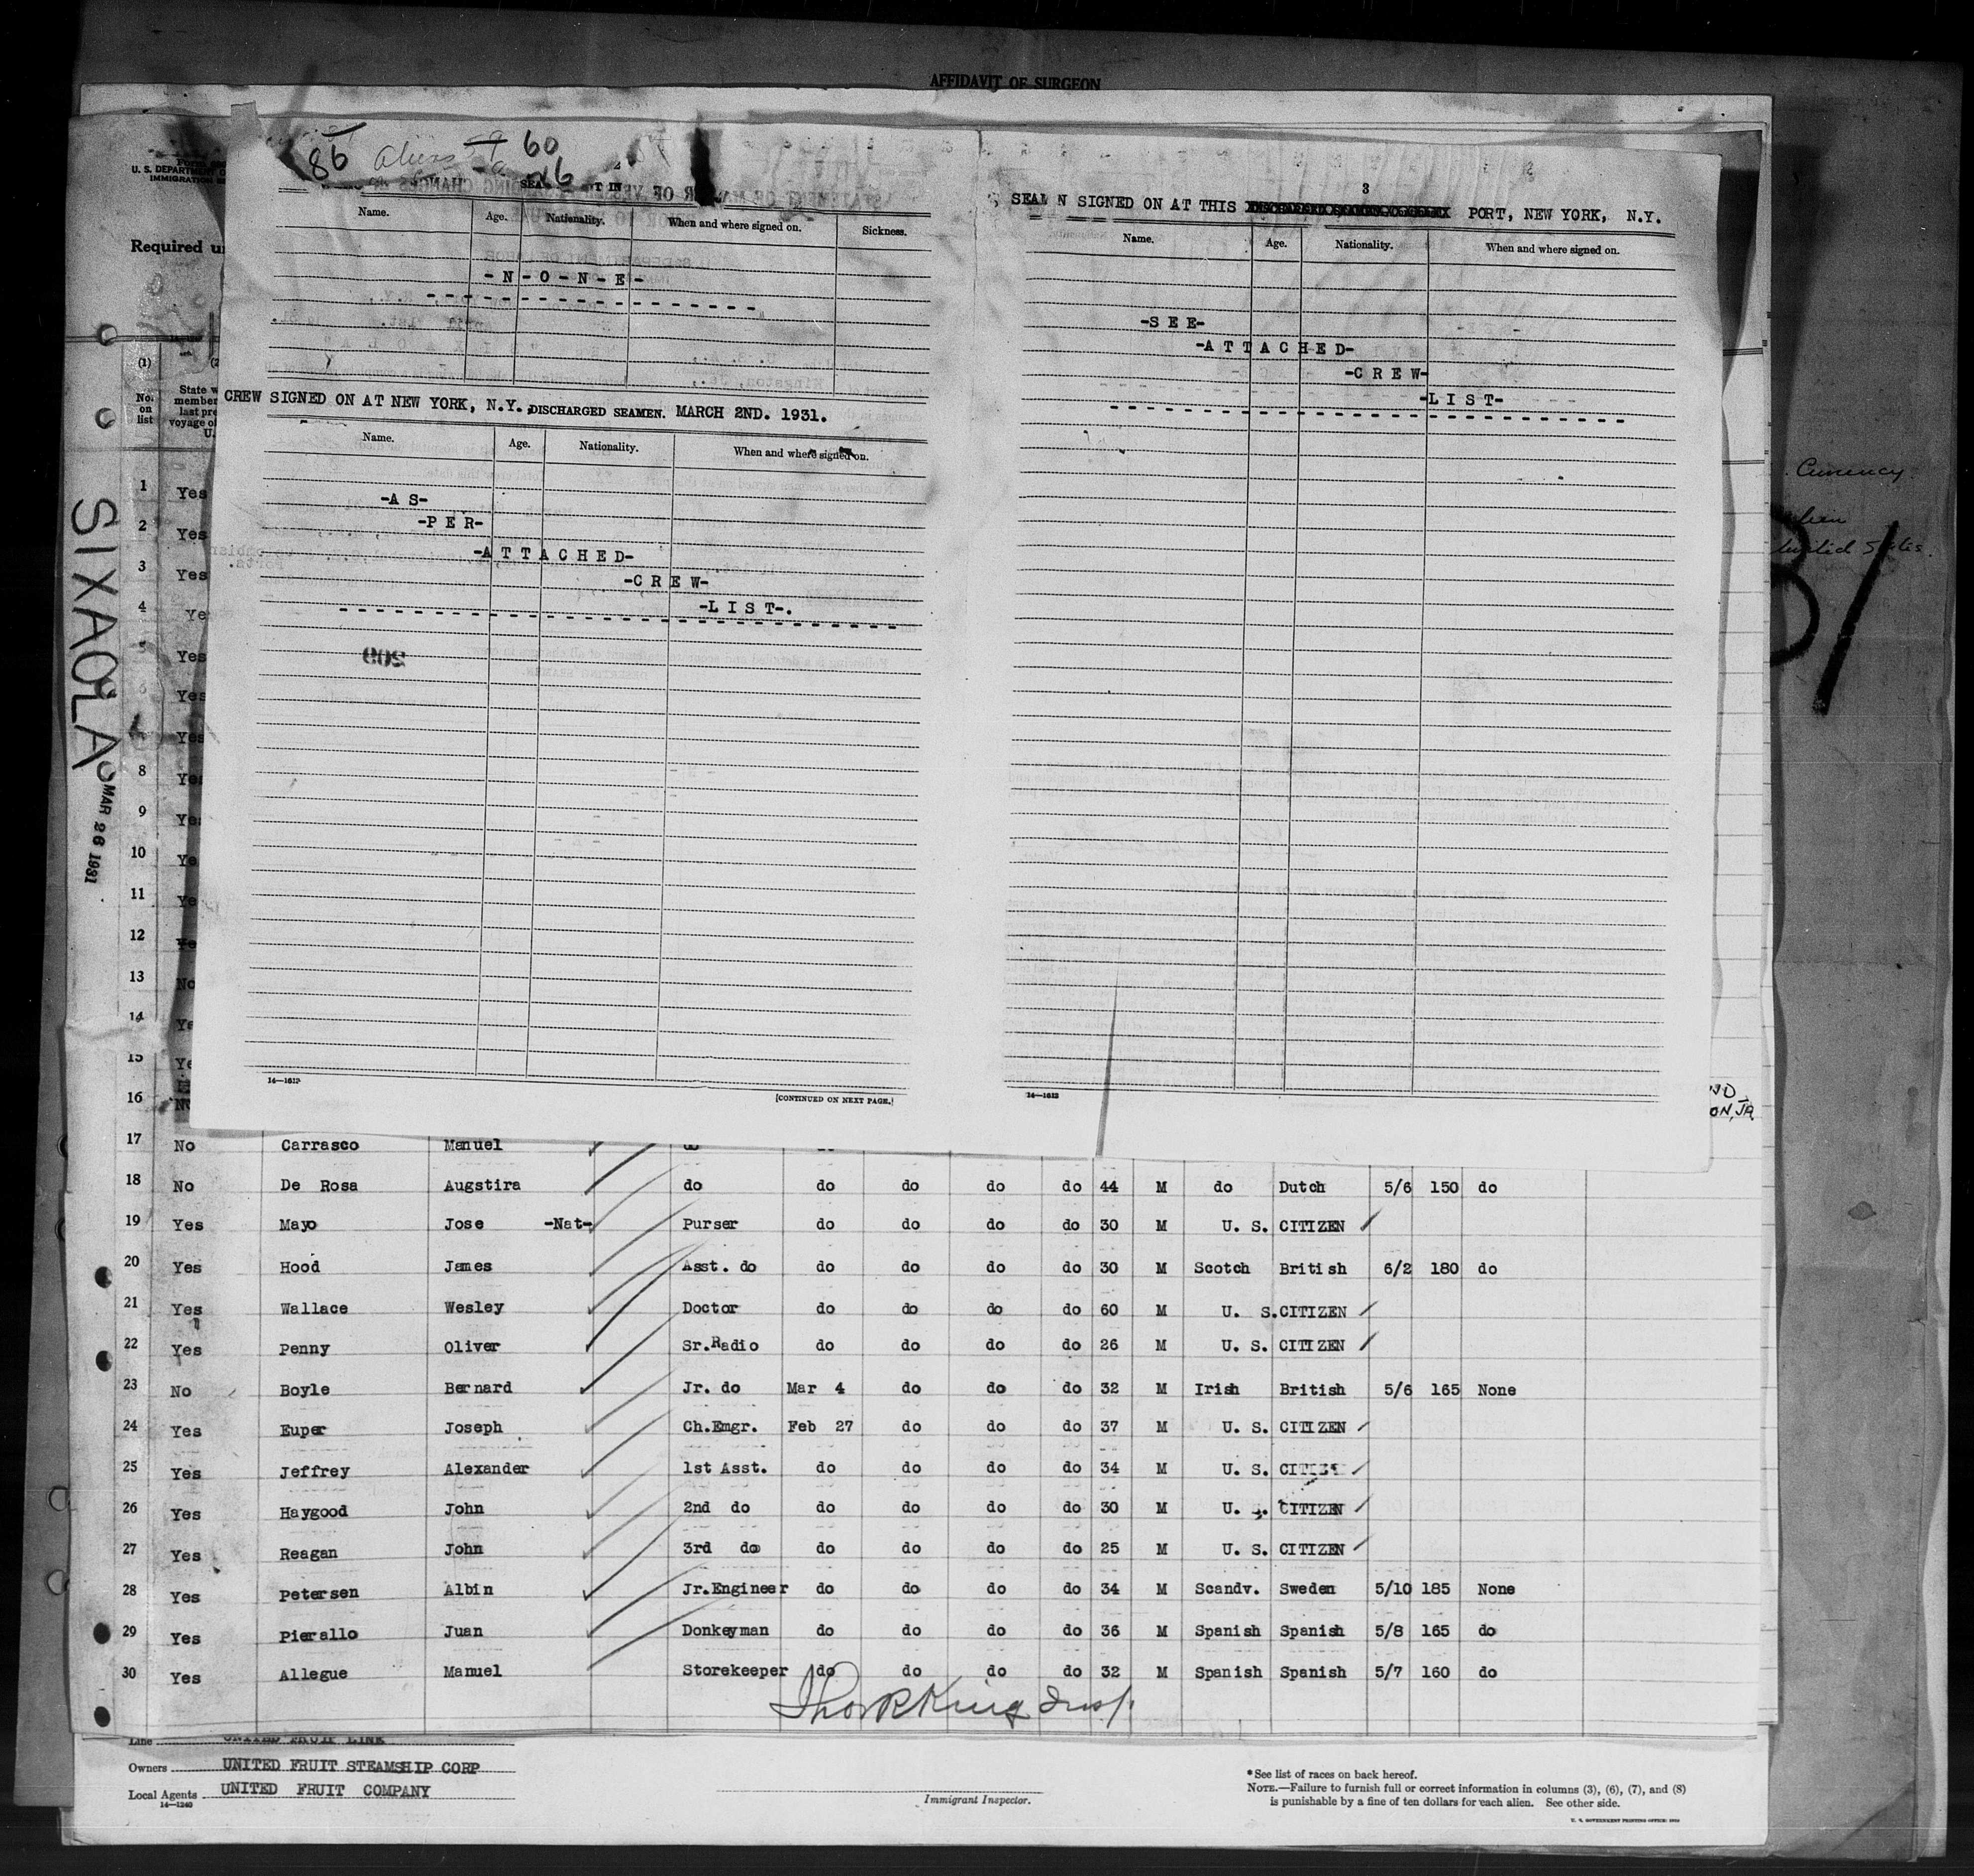 AFFIDAVIT OF SURGEON
86 Aliens 59 60
U. S. DEPARTMENT
IMMIGRATION
Name. Age. Nationality. When and where signed on. Sickness.
-N-O-N-E-
CREW SIGNED ON AT NEW YORK, N.Y. DISCHARGED SEAMEN. MARCH 2ND. 1931.
Name. Age. Nationality. When and where signed on.
-A S-
-P E R-
-A T T A C H E D-
-C R E W-
-L I S T-.
14—1613
[CONTINUED ON NEXT PAGE.]
3
SEAM N SIGNED ON AT THIS PORT, NEW YORK, N.Y.
Name. Age. Nationality. When and where signed on.
-S E E-
-A T T A C H E D-
-C R E W-
-L I S T-
14—1613
Required
(1)
No. on list
State
member
last
voyage of
U.
SIXAOLA
MAR 26 1931
Currency
United States.
1 Yes
2 Yes
3 Yes
4 Ye
5 Yes
6 Yes
Yes
8 Yes
9 Ye
10 Ye
11 Ye
12 Ye
13 No
14 Ye
15 Ye
16 No
ON, JA
17 No Carrasco Manuel do
18 No De Rosa Augstira do do do do do 44 M do Dutch 5/6 150 do
19 Yes Mayo Jose -Nat- Purser do do do do 30 M U. S. CITIZEN
20 Yes Hood James Asst. do do do do do 30 M Scotch British 6/2 180 do
21 Yes Wallace Wesley Doctor do do do do 60 M U. S. CITIZEN
22 Yes Penny Oliver Sr.Radio do do do do 26 M U. S. CITIZEN
23 No Boyle Bernard Jr. do Mar 4 do do do 32 M Irish British 5/6 165 None
24 Yes Euper Joseph Ch.Engr. Feb 27 do do do 37 M U. S. CITIZEN
25 Yes Jeffrey Alexander 1st Asst. do do do do 34 M U. S. CITIZEN
26 Yes Haygood John 2nd do do do do do 30 M U. S. CITIZEN
27 Yes Reagan John 3rd do do do do do 25 M U. S. CITIZEN
28 Yes Petersen Albin Jr.Engineer do do do do 34 M Scandv. Sweden 5/10 185 None
29 Yes Pierallo Juan Donkeyman do do do do 36 M Spanish Spanish 5/8 165 do
30 Yes Allegue Manuel Storekeeper do do do do 32 M Spanish Spanish 5/7 160 do
Thos R King Insp.
Line UNITED FRUIT LINE
Owners UNITED FRUIT STEAMSHIP CORP
Local Agents UNITED FRUIT COMPANY
14—1240
Immigrant Inspector.
*See list of races on back hereof.
NOTE.—Failure to furnish full or correct information in columns (3), (6), (7), and (8)
is punishable by a fine of ten dollars for each alien. See other side.
U. S. GOVERNMENT PRINTING OFFICE: 1930